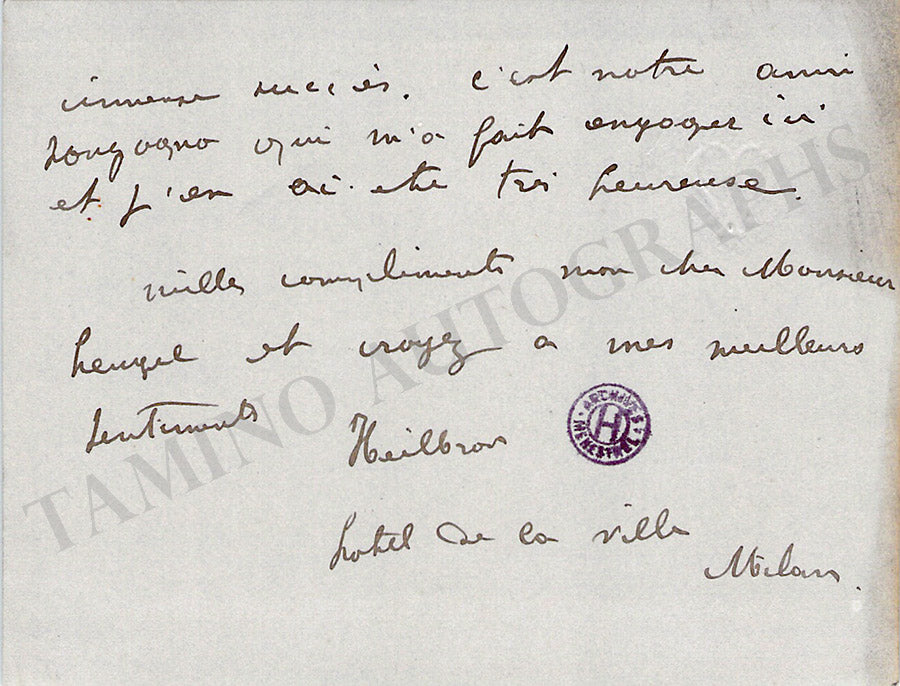 immense succès. c'est notre ami
Sonzogno qui m'a fait engager ici
et j'en ai été très heureuse.
mille compliments mon cher Monsieur
heugel et croyez a mes meilleurs
sentiments
Heilbron
hotel de la ville
Milan.
ARCHIVES
H
MENESTREL
TAMINO AUTOGRAPHS